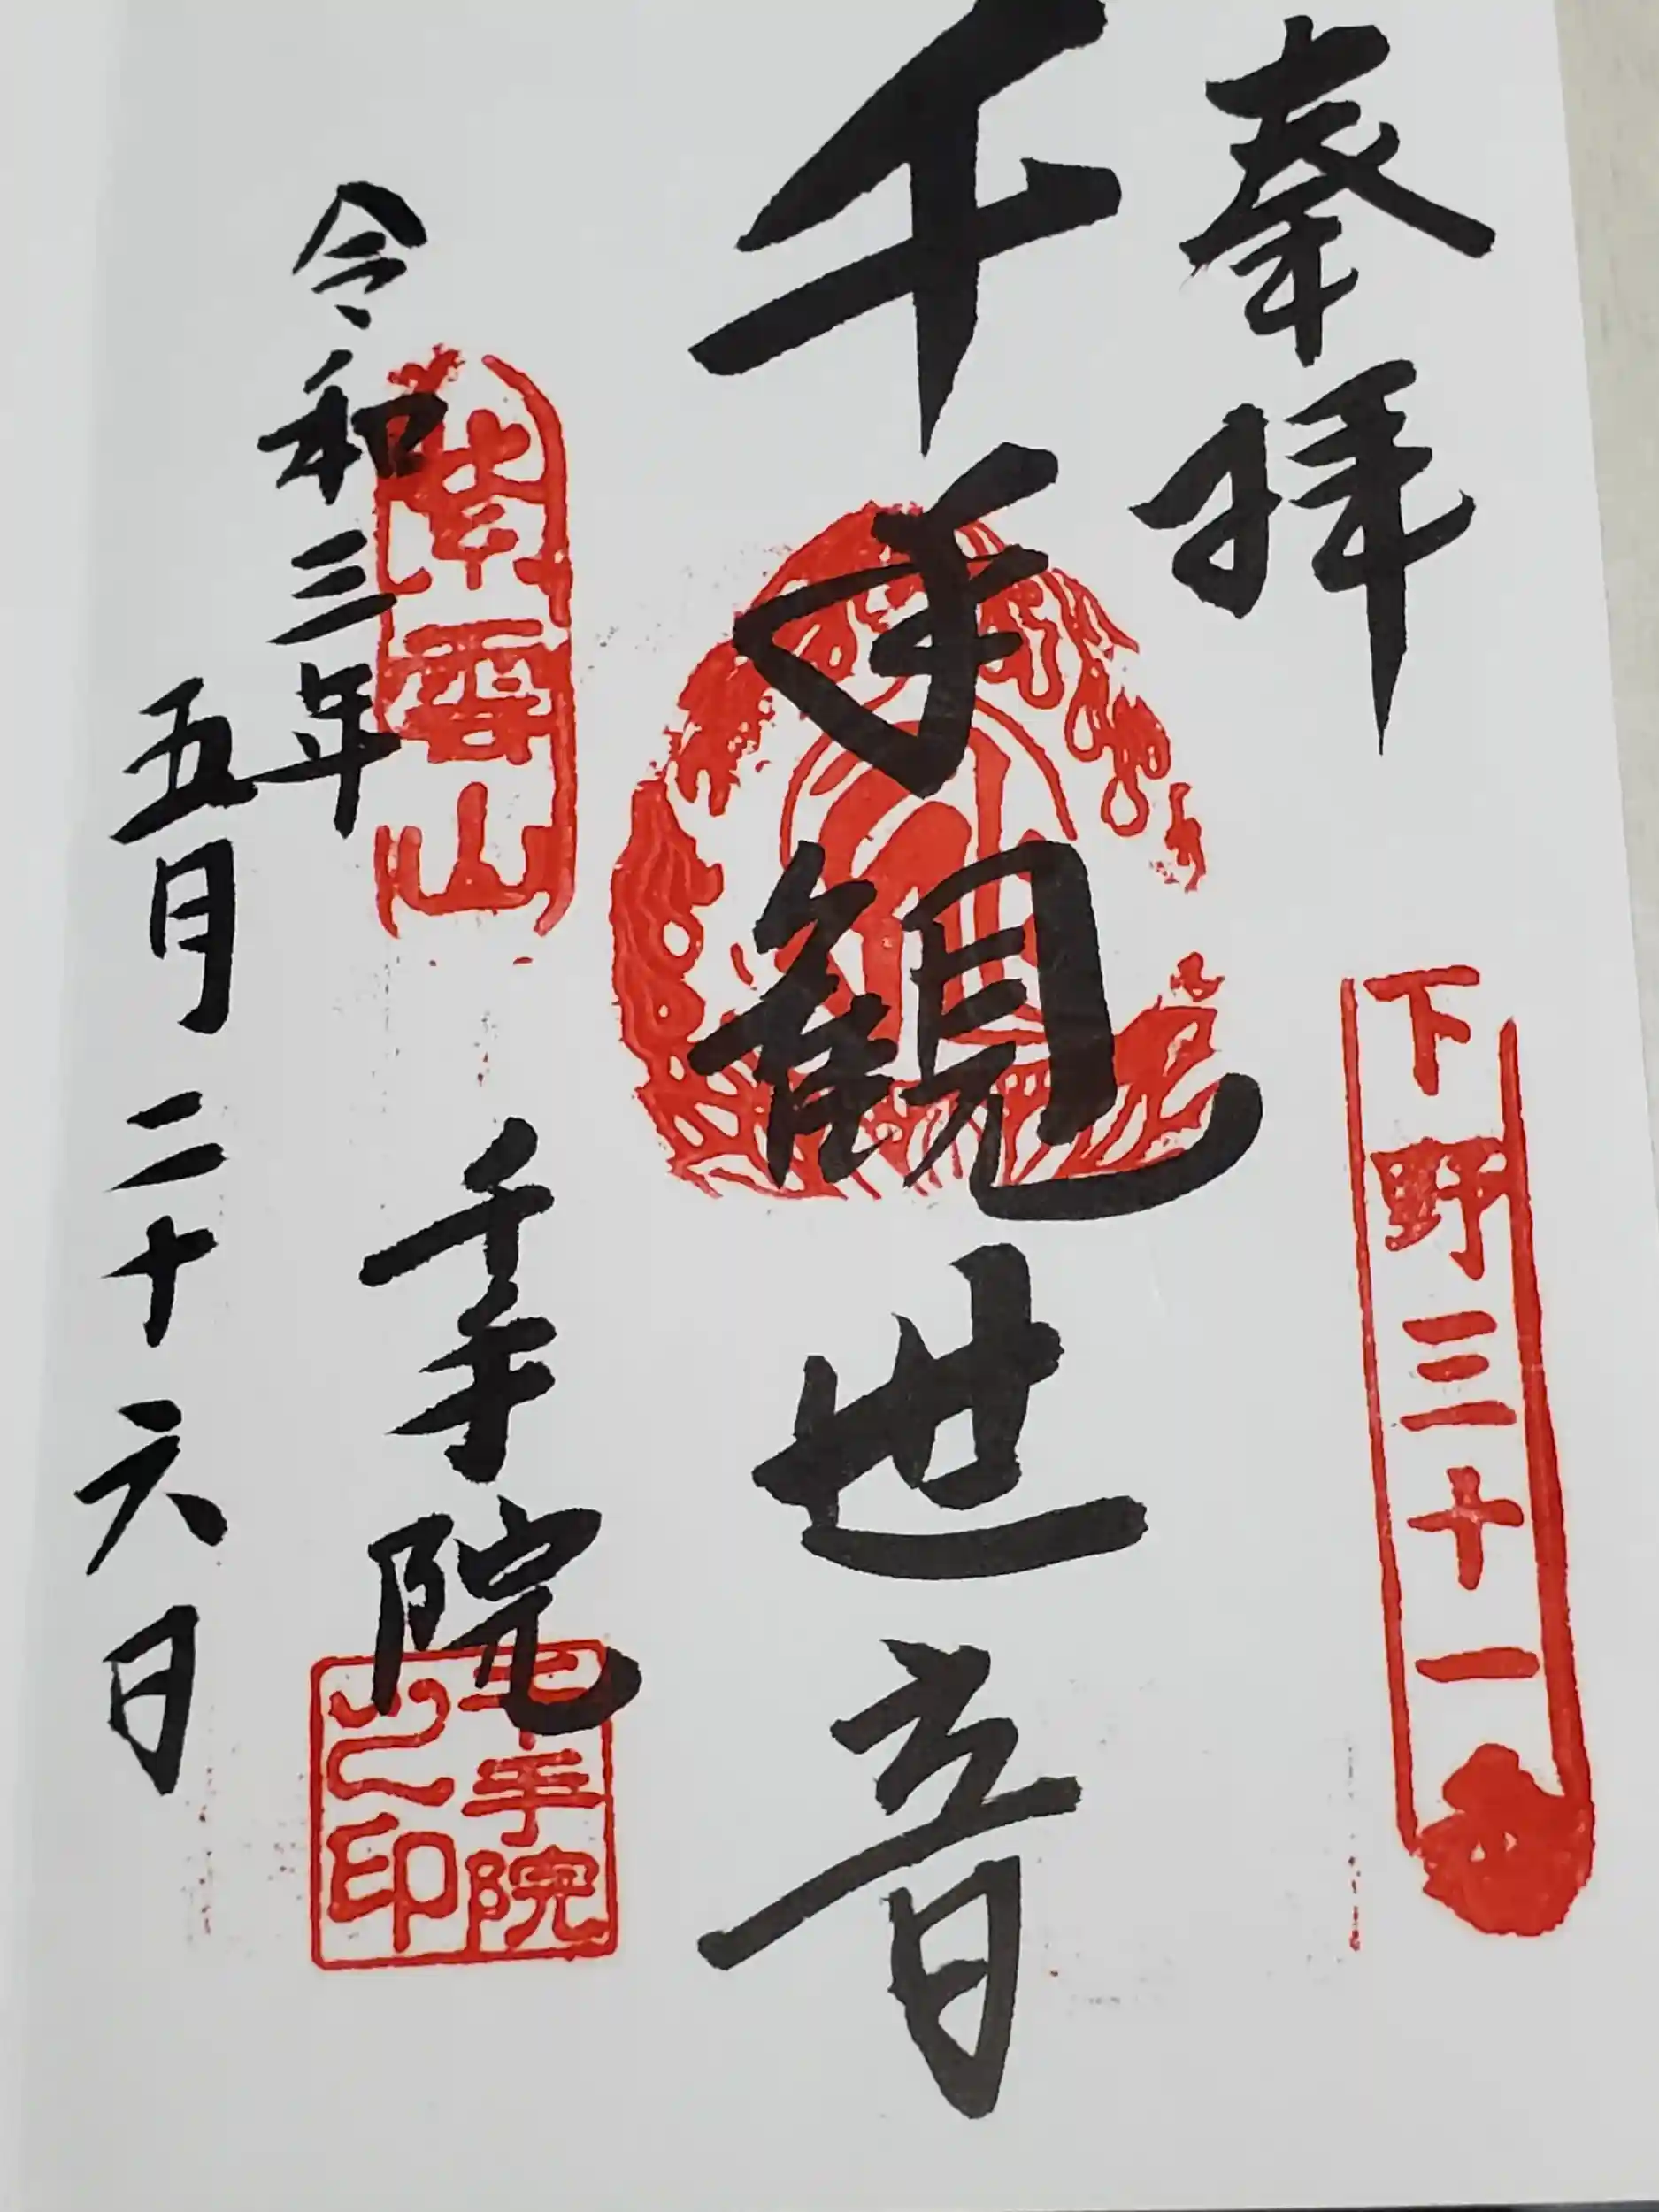 奉拝
下野三十一
千手観世音
紫雲山
千手院
千手院
之印
令和三年
五月二十六日